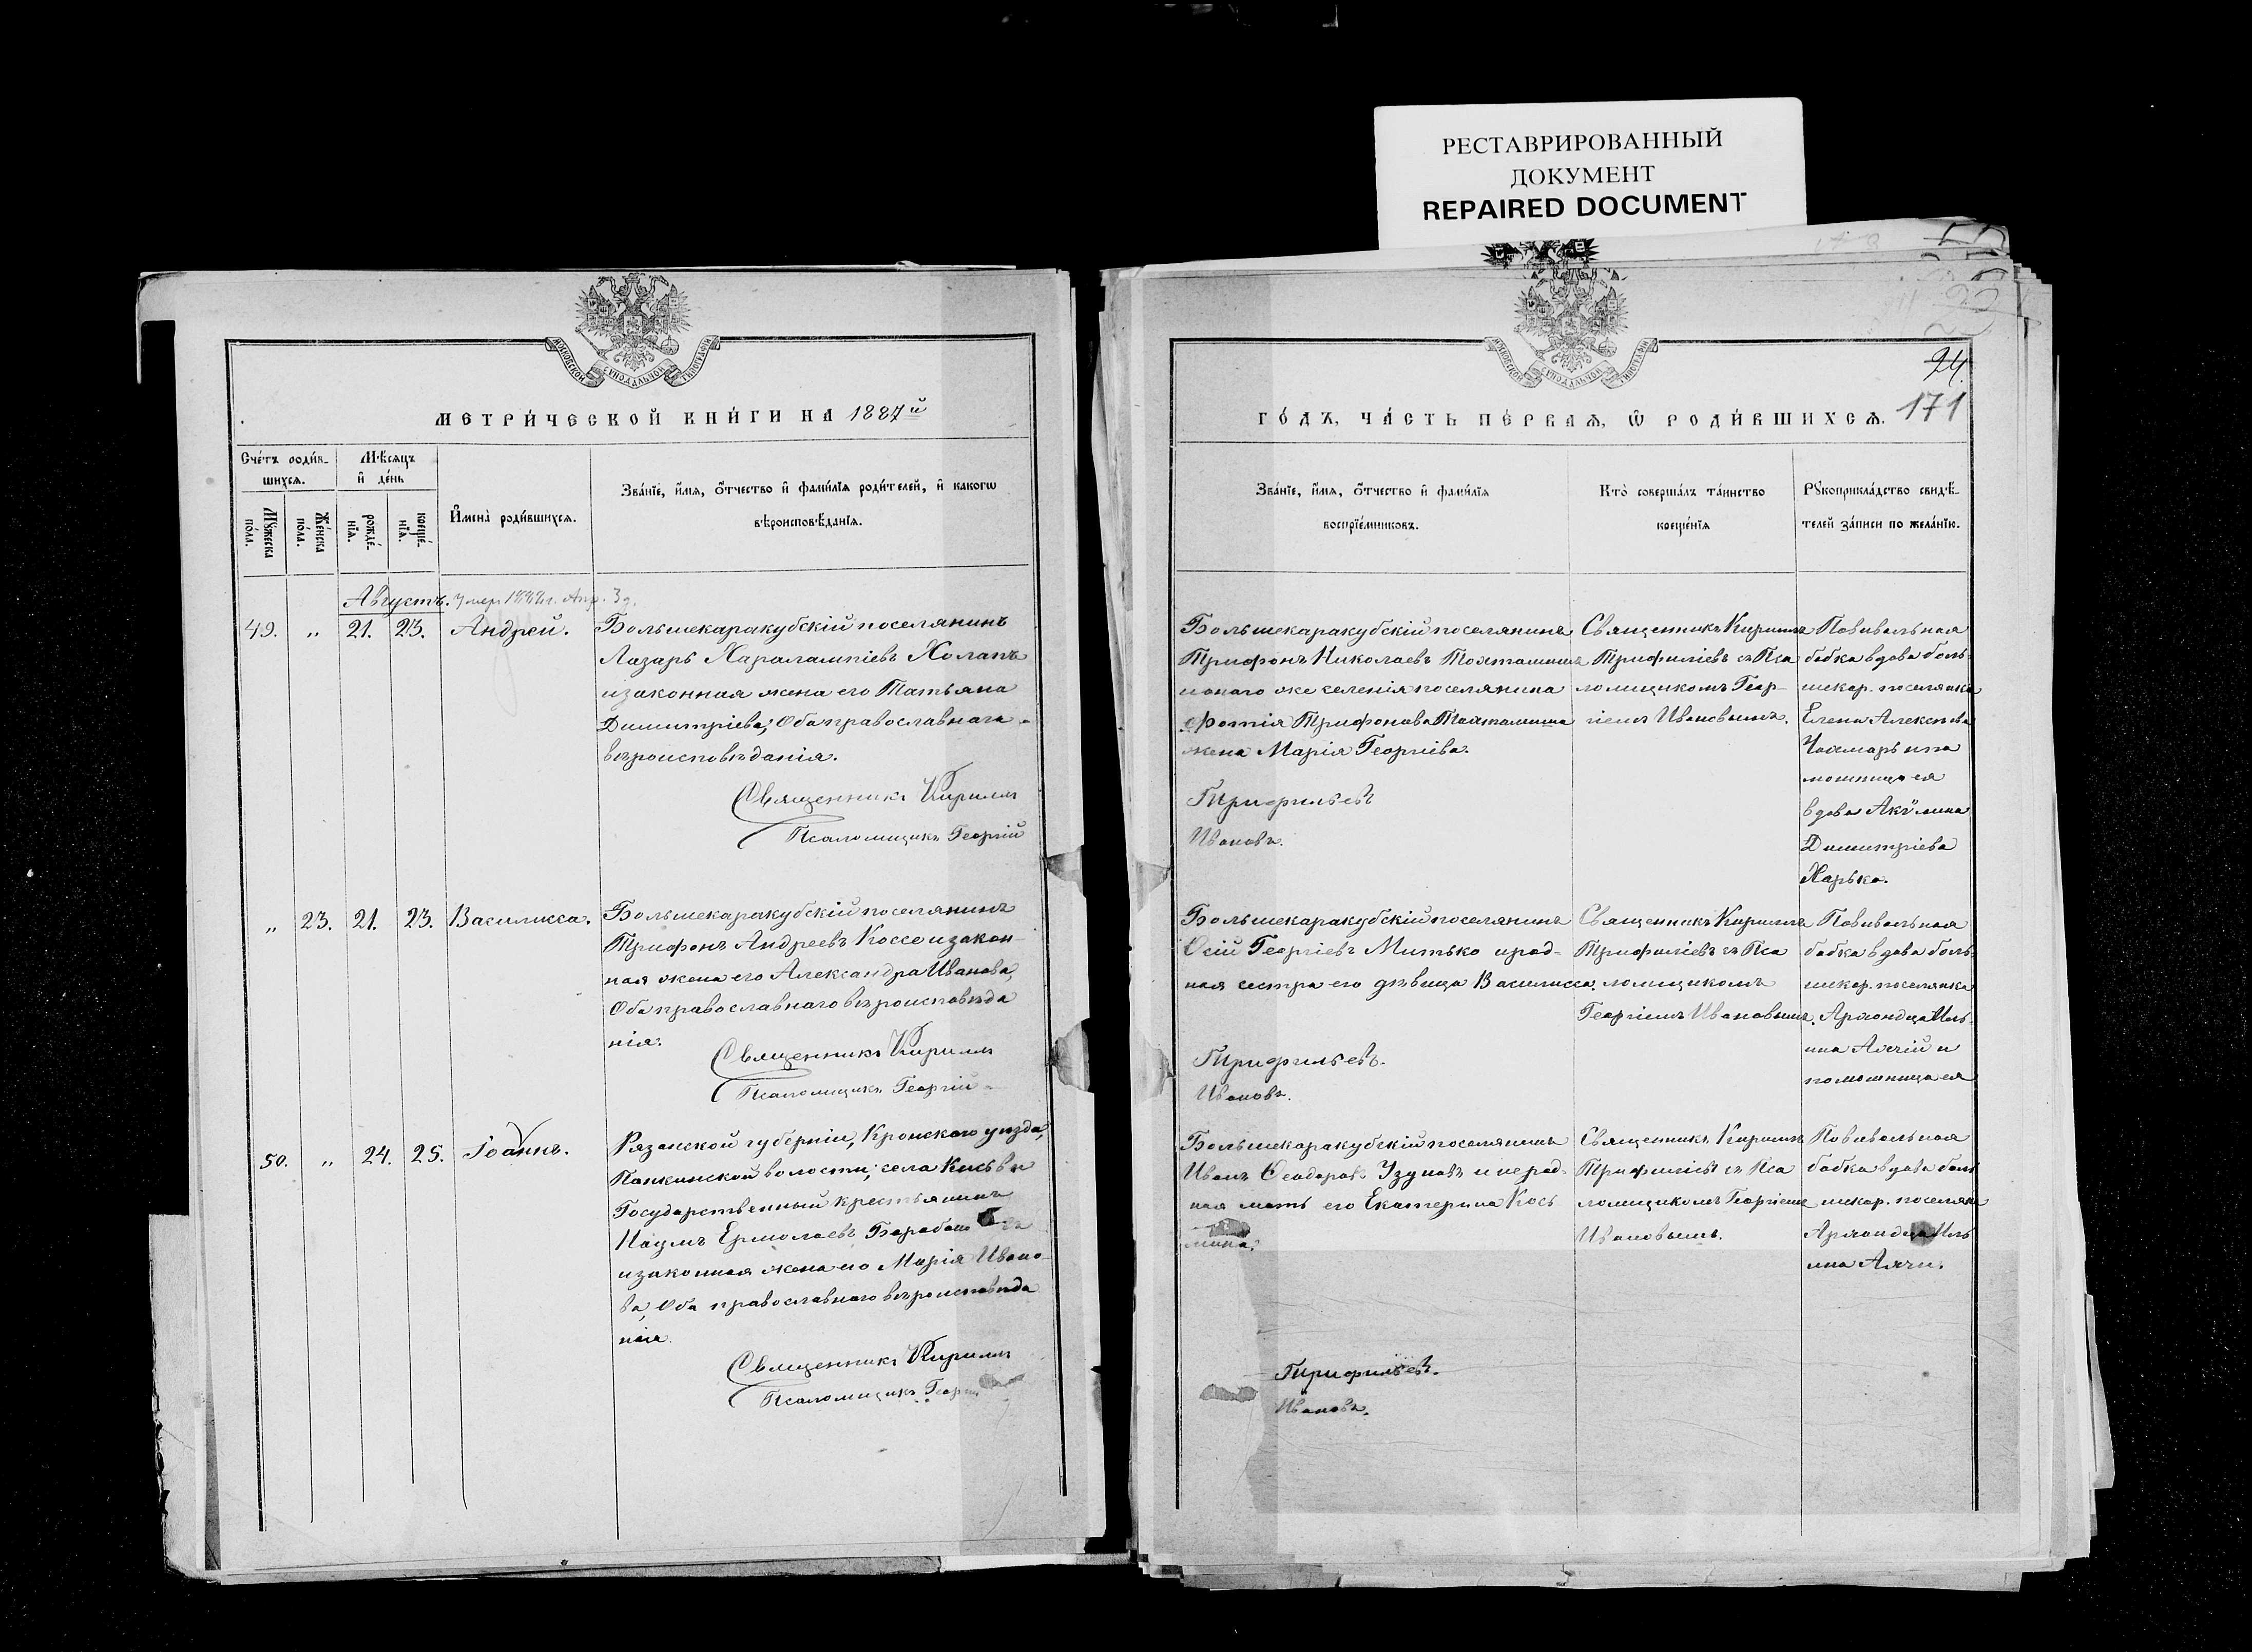 РЕСТАВРИРОВАННЫЙ
ДОКУМЕНТ
REPAIRED DOCUMENT
МОСКОВСКОЙ СѴНОДАЛЬНОЙ ТИПОГРАФІИ
МЕТРИ́ЧЕСКОЙ КНИ́ГИ НА 1887й
Сче́тъ роди́в-
шихсѧ.
Мѣ́сѧцъ
и҆ де́нь
Мꙋ́жеска
по́ла.
Же́нска
по́ла.
рожде́-
нїѧ.
креще́-
нїѧ.
И҆мена̀ роди́вшихсѧ.
Зва́нїе, и҆́мѧ, ѻ҆́тчество и҆ фами́лїѧ роди́телей, и҆ како́гѡ
вѣроисповѣ́данїѧ.
Августъ. Умер 1888 г. Апр. 3 д.
49. „ 21. 23. Андрей.
Большекаракубскій поселянинъ
Лазарь Харалампіевъ Холапъ
и законная жена его Татьяна
Димитріева, Оба православнаго
вѣроисповѣданія.
Священникъ Кириллъ
Псаломщикъ Георгій
„ 23. 21. 23. Василисса.
Большекаракубскій поселянинъ
Трифонъ Андреевъ Коссе и закон-
ная жена его Александра Иванова,
Оба православнаго вѣроисповѣда
нія.
Священникъ Кириллъ
Псаломщикъ Георгій
50. „ 24. 25. Іоаннъ.
Рязанской губерніи, Кронскаго уѣзда,
Панкинской волости, села
Государственный крестьянинъ
Наумъ Ермолаевъ
и законная жена его Марія Ивано-
ва, Оба православнаго вѣроисповѣда
нія.
Священникъ Кириллъ
Псаломщикъ Георгій
24.
171
МОСКОВСКОЙ СѴНОДАЛЬНОЙ ТИПОГРАФІИ
ГО́ДЪ, ЧА́СТЬ ПЕ́РВАѦ, Ѡ҆ РОДИ́ВШИХСѦ.
Зва́нїе, и҆́мѧ, ѻ҆́тчество и҆ фами́лїѧ
воспрїе́мниковъ.
Кто̀ соверша́лъ та́инство
креще́нїѧ
Рꙋкоприкла́дство свидѣ́-
телей за́писи по жела́нїю.
Большекаракубскій поселянинъ
Трифонъ Николаевъ Тохтамышъ
и онаго же селенія поселянина
Фотія Трифонова Тохтамыша
жена Марія Георгіева.
Трифильевъ
Ивановъ.
Священникъ Кириллъ
Трифиліевъ съ Пса
ломщикомъ Геор-
гіемъ Ивановымъ.
Повивальная
бабка вдова боль-
шекар. поселянка
Елена Алексѣева
помощница ея
вдова Акилина
Димитріева
Харько.
Большекаракубскій поселянинъ
Ѳсій Георгіевъ Митько и род-
ная сестра его дѣвица Василисса.
Трифильевъ.
Ивановъ.
Священникъ Кириллъ
Трифиліевъ съ Пса
ломщикомъ
Георгіемъ Ивановымъ.
Повивальная
бабка вдова боль-
шекар. поселянка
Архондца Иль-
ина и
помошница ея
Большекаракубскій поселянинъ
Иванъ Ѳеодоровъ Узуновъ и нерод-
ная мать его Екатерина Кось
мина.
Трифильевъ.
Ивановъ.
Священникъ Кириллъ
Трифиліевъ съ Пса
ломщикомъ Георгіемъ
Ивановымъ.
Повивальная
бабка вдова боль
шекар. поселян
Архондца Иль
ина